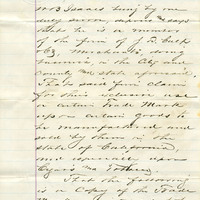 M B Isaacs being by me
duly sworn, deposes & says
that he is a member
of the firm of
Merchants, doing
business, in the City and
County and state aforesaid.
That said firm claim
for their exclusive use
a certain Trade Mark
upon certain goods to
be manufactured and
sold by them in the
state of California,
and especially upon
Cigars and Tobacco
That the following
is a Copy of the Trade